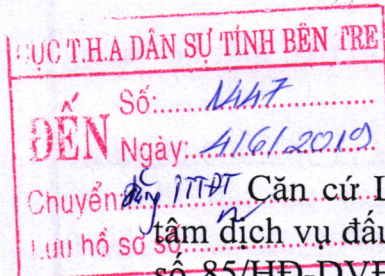 CỤC T.H.A DÂN SỰ TỈNH BẾN TRE
ĐẾN
Số: 1447
Ngày: 4/6/2019
Chuyển: TTĐT
Căn cứ L
Lưu hồ sơ số
tâm dịch vụ đấu
số 85/HĐ-DVĐ